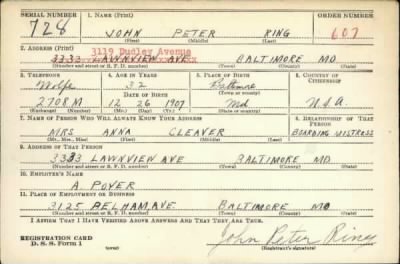 SERIAL NUMBER 1. NAME (Print) ORDER NUMBER
728 JOHN PETER RING 607
(First) (Middle) (Last)
2. ADDRESS (Print)
3119 Dudley Avenue
3333 LAWNVIEW AVE BALTIMORE MD
(Number and street or R. F. D. number) (Town) (County) (State)
3. TELEPHONE 4. AGE IN YEARS 5. PLACE OF BIRTH 6. COUNTRY OF CITIZENSHIP
Wolfe 32 Baltimore
DATE OF BIRTH (Town or county)
2708M 12 26 1907 Md U.S.A.
(Exchange) (Number) (Mo.) (Day) (Yr.) (State or country)
7. NAME OF PERSON WHO WILL ALWAYS KNOW YOUR ADDRESS 8. RELATIONSHIP OF THAT PERSON
MRS ANNA CLEAVER BOARDING MISTRESS
(Mr., Mrs., Miss) (First) (Middle) (Last)
9. ADDRESS OF THAT PERSON
3333 LAWNVIEW AVE BALTIMORE MD
(Number and street or R. F. D. number) (Town) (County) (State)
10. EMPLOYER'S NAME
A. POVER
11. PLACE OF EMPLOYMENT OR BUSINESS
3125 BELHAM AVE BALTIMORE MD
(Number and street or R. F. D. number) (Town) (County) (State)
I AFFIRM THAT I HAVE VERIFIED ABOVE ANSWERS AND THAT THEY ARE TRUE.
REGISTRATION CARD John Peter Ring
D. S. S. Form 1 (over) (Registrant's signature)